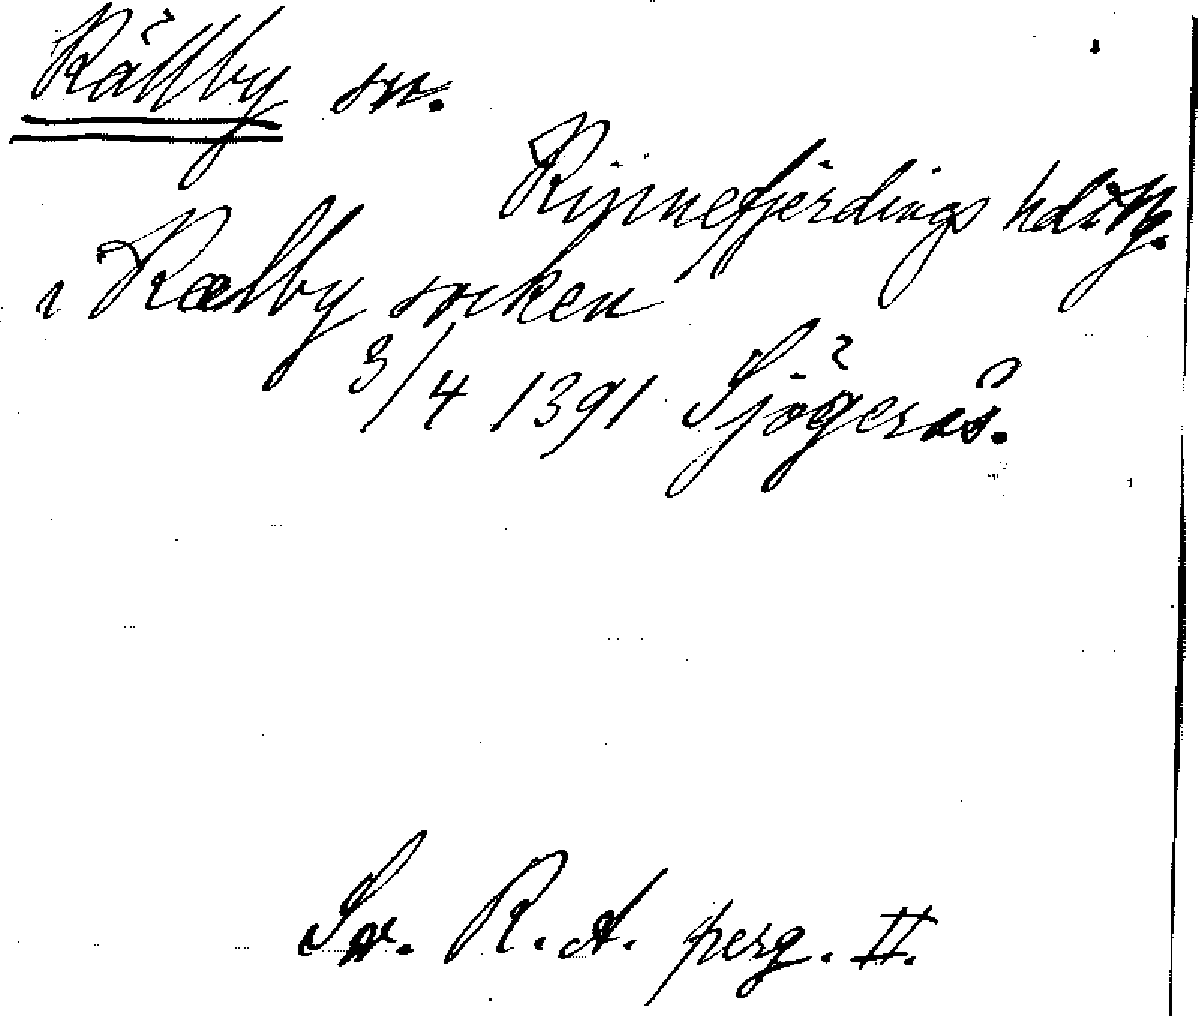 Källby sn.
Kinnefjerdings hd. Vg.
i Kælby socken
3/4 1391 Sjögerås.
Sv. R. A. perg. II.